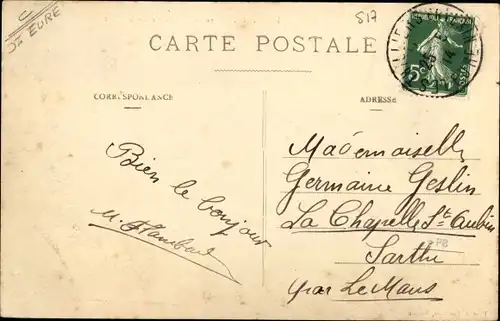 C
Dt EURE
517
CARTE POSTALE
CORRESPONDANCE
ADRESSE
5c
Bien le bonjour
Mademoiselle
Germaine Geslin
La Chapelle St Aubin
Sarthe
par Le Mans